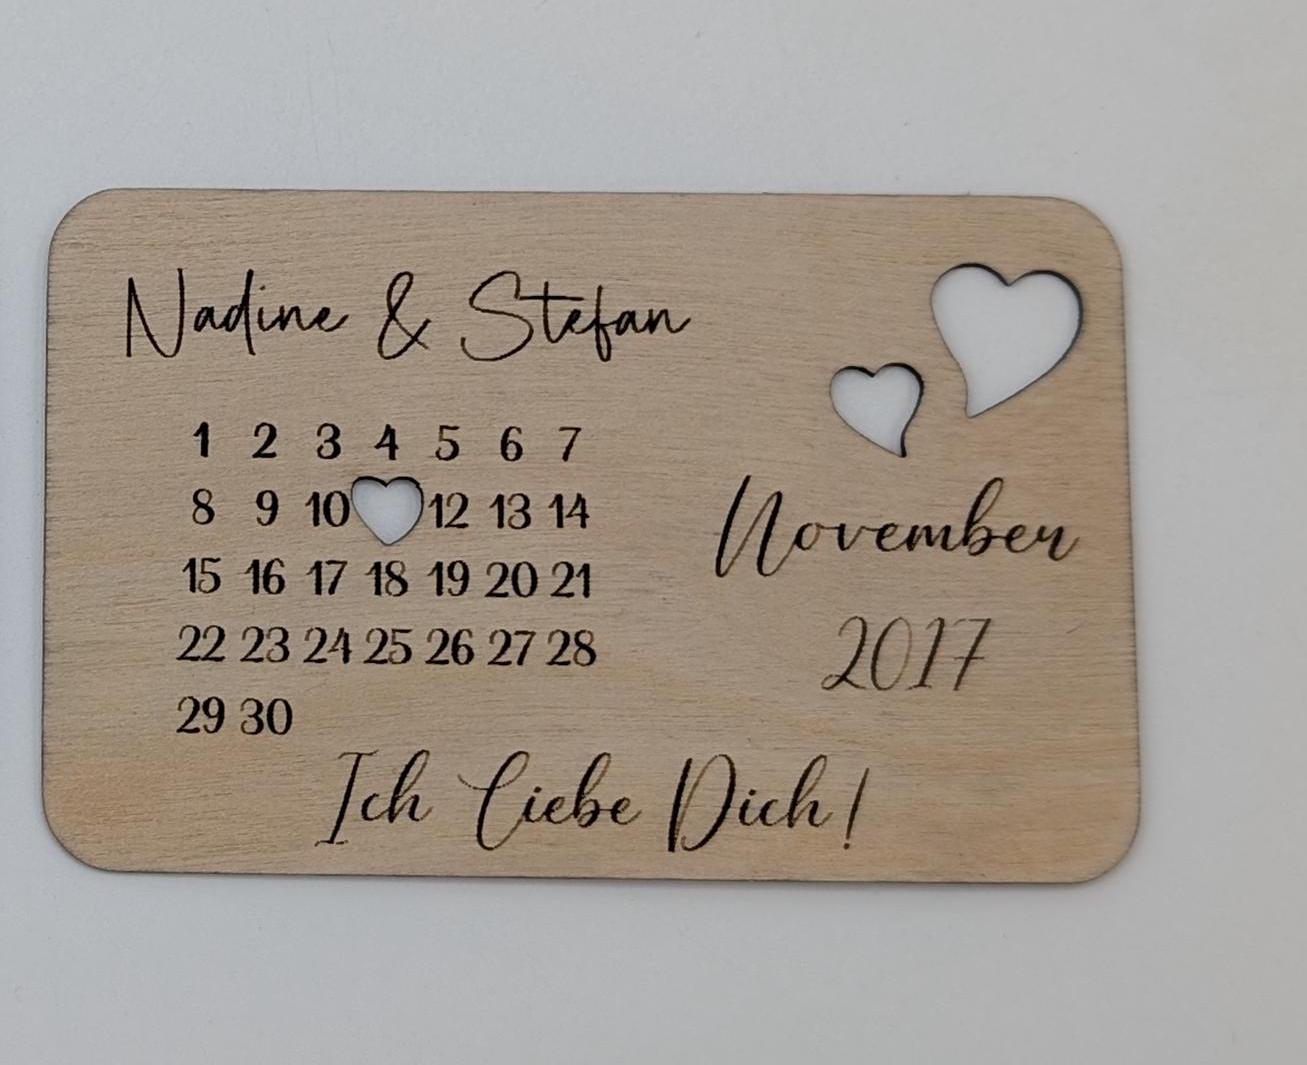 Nadine & Stefan
1 2 3 4 5 6 7
8 9 10 12 13 14
15 16 17 18 19 20 21
22 23 24 25 26 27 28
29 30
November
2017
Ich Liebe Dich!